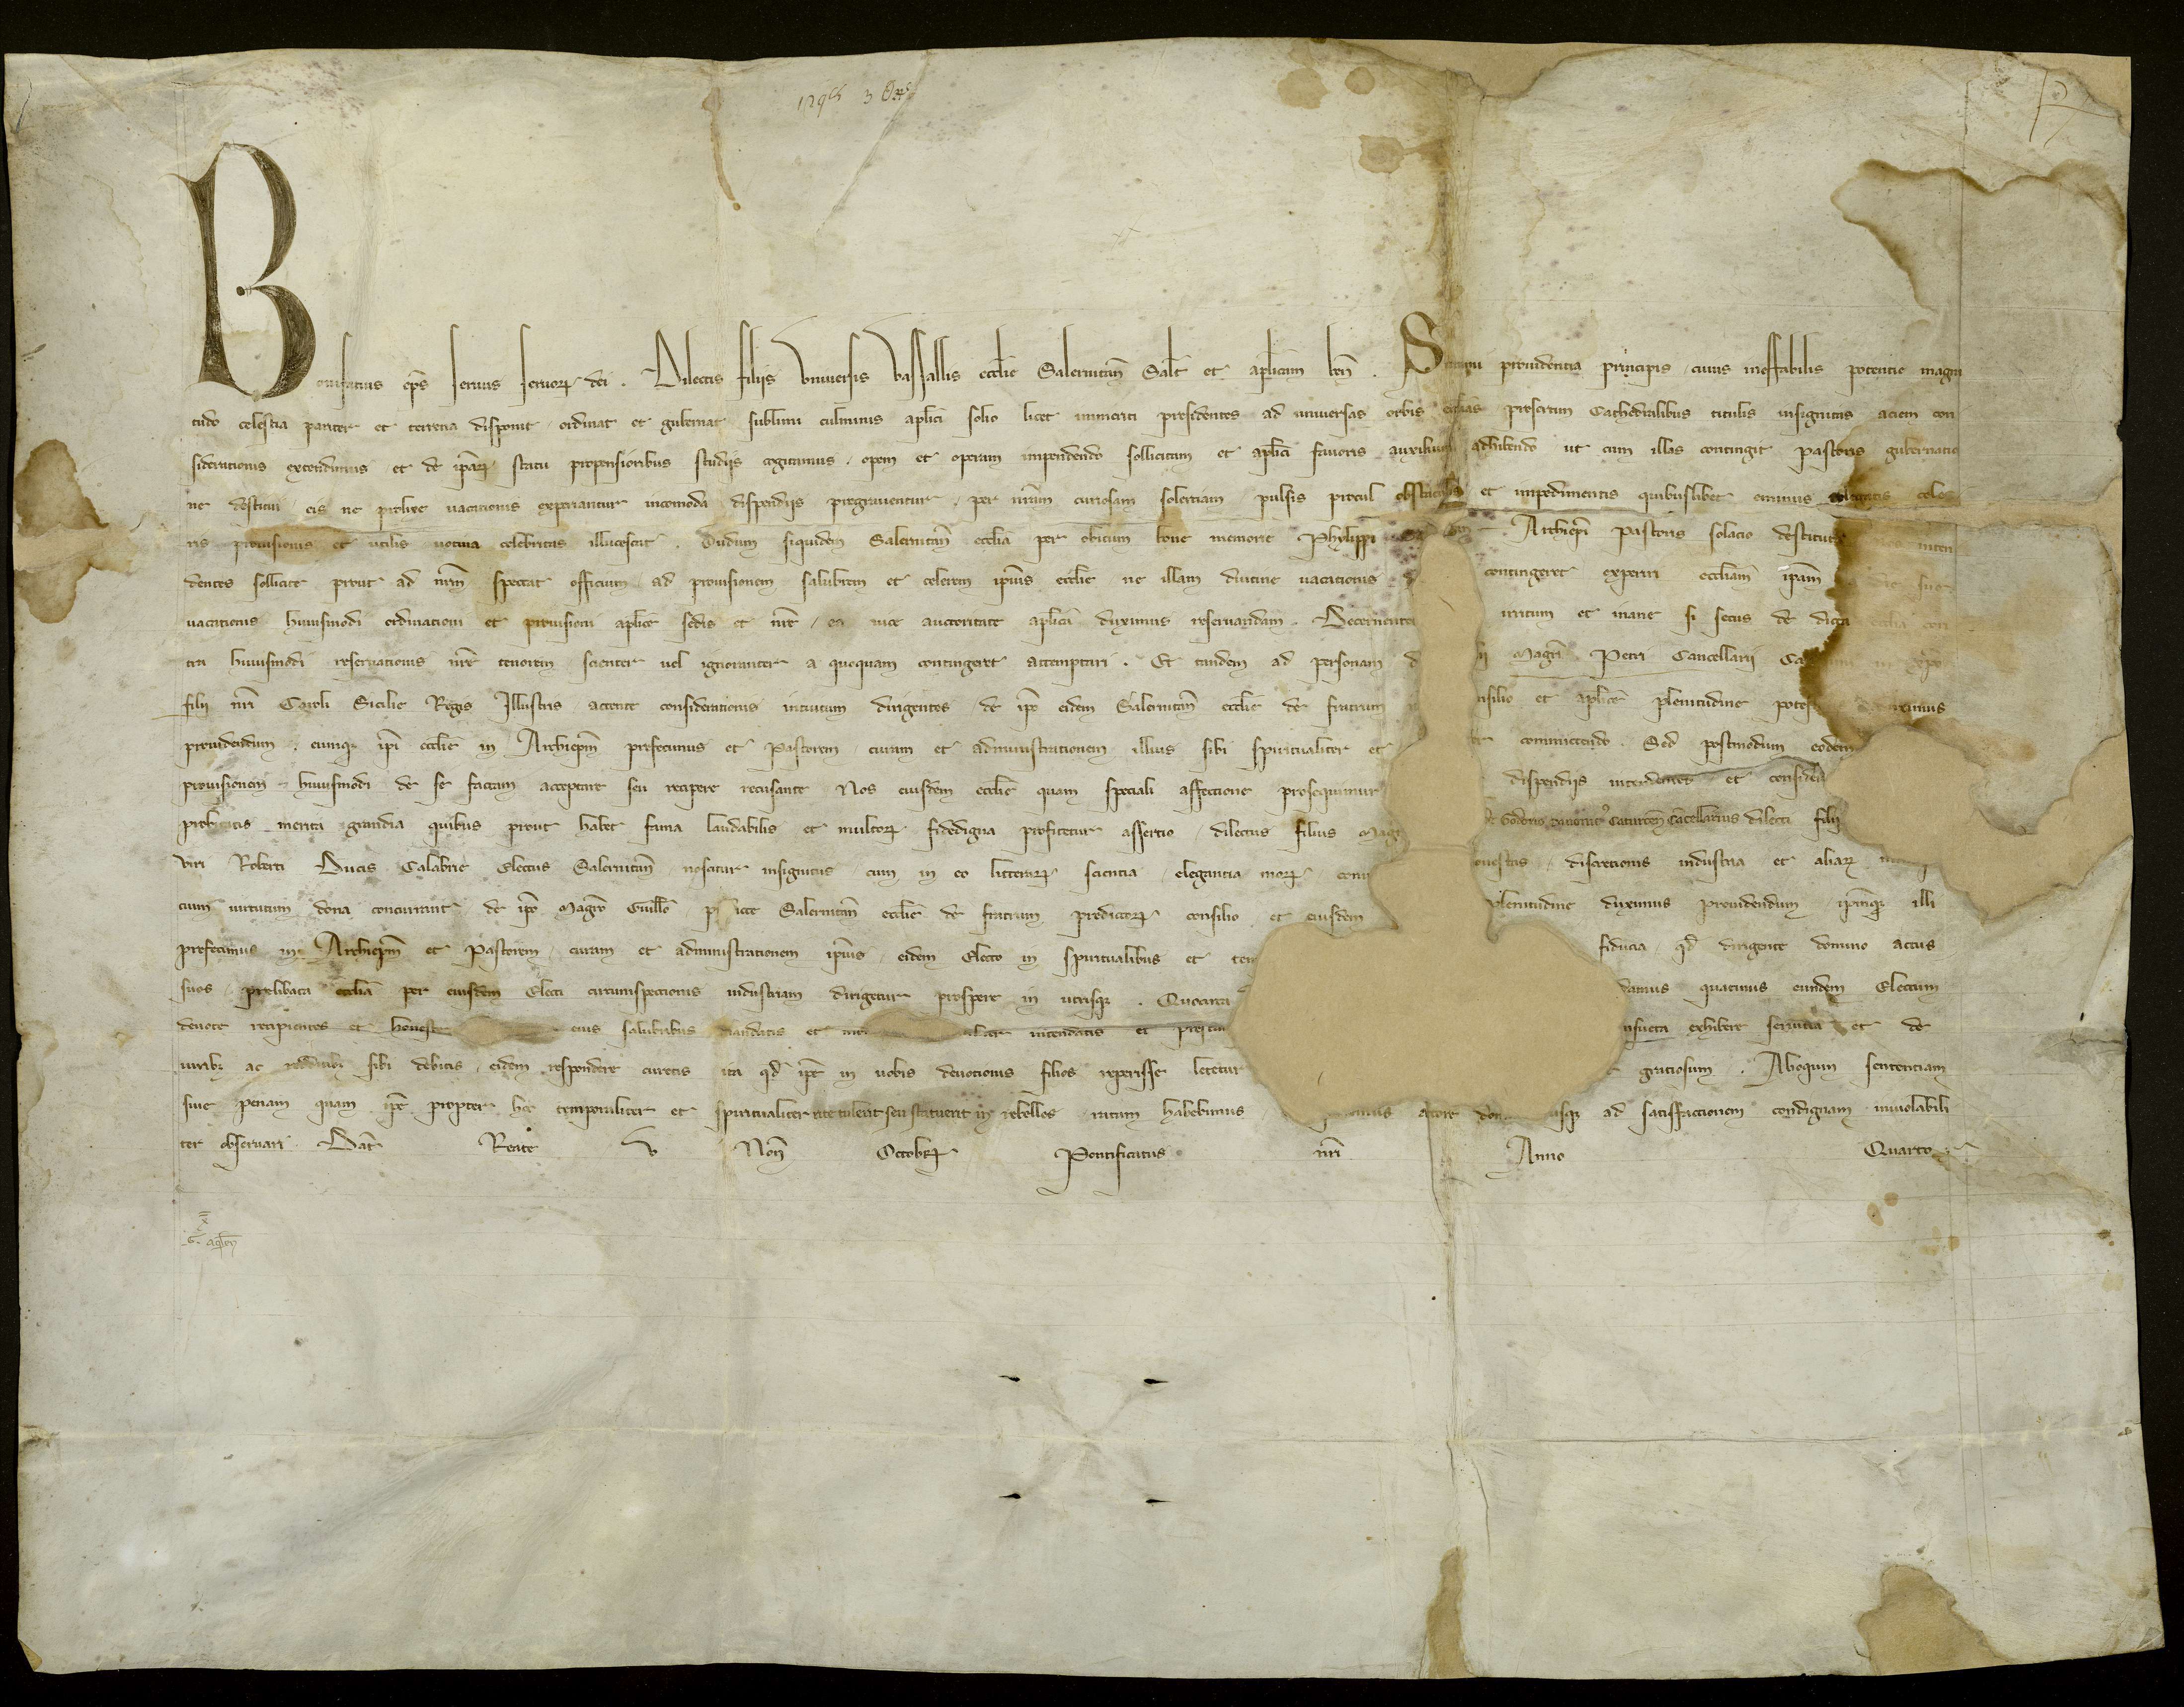 1298 3 8bre
Bonifatius ep̄s seruus seruoꝝ dei . Dilectis filijs vniuersis vassallis ecclīe Salernitan̄ Salt̄ et apl̄icam ben̄ . Summi prouidentia principis cuius ineffabilis potentie magni
tudo celestia pariter et terrena disponit ordinat et gubernat sublimi culminis apl̄ici solio licet immeriti presidentes ad uniuersas orbis ecclīas presertim Cathedralibus titulis insignitas aciem con
siderationis extendimus et de ip̄aꝝ statu propensioribus studijs cogitamus opem et operam impendendo sollicitam et apl̄ici fauoris auxilium adhibendo ut cum illas contingit Pastoris gubernatio
ne destitui eis ne prolixe uacationis experiantur incomoda dispendijs pregrauentur per nr̄am curiosam solertiam pulsis procul obstaculis et impedimentis quibuslibet celes
ris prouisionis et utilis uotiua celebritas illucescat . Dudum siquidem Salernitan̄ ecclīa per obitum bone memorie Phylippi Archiep̄i Pastoris solacio destituta inten
dentes sollicite prout ad nr̄m spectat officium ad prouisionem salubrem et celerem ip̄ius ecclīe ne illam diutine uacationis contingeret experiri ecclīam ip̄am sue
uacationis huiusmodi ordinationi et prouisioni apl̄ice sedis et nr̄e ea uice auctoritate apl̄ica duximus reseruandam . Decernentes irritum et inane si secus de dicta ecclīa con
tra huiusmodi reseruationis nr̄e tenorem scienter uel ignoranter a quoquam contingeret attemptari . Et tandem ad personam Magr̄i Petri Cancellarii in xp̄o
filij nr̄i Caroli Sicilie Regis Illustris attente considerationis intuitum dirigentes de ip̄o eidem Salernitan̄ ecclīe de fratrum consilio et apl̄ice plenitudine duximus
prouidendum eumqꝫ ip̄i ecclīe in Archiep̄m prefecimus et Pastorem curam et administrationem illius sibi spiritualiter et committendo . Sed postmodum eodem
prouisionem huiusmodi de se factam acceptare seu recipere recusante Nos eiusdem ecclīe quam speciali affectione prosequimur dispendijs et
probitatis merita grandia quibus prout habet fama laudabilis et multoꝝ fidedigna profitetur assertio dilectus filius Caturcen̄ Cancellarius dilecti filij
viri Roberti Ducis Calabrie Electus Salernitan̄ noscitur insignitus cum in eo litteraꝝ scientia elegantia moꝝ honestas discretionis industria et aliaꝝ
cium uirtutum dona concurrant de ip̄o Magr̄o Guill̄o Salernitan̄ ecclīe de fratrum predictoꝝ consilio et eiusdem plenitudine duximus prouidendum ip̄mqꝫ illi
prefecimus in Archiep̄m et Pastorem curam et administrationem ip̄ius eidem Electo in spiritualibus et fiducia qd̄ dirigente domino actus
suos prelibata ecclīa per eiusdem Electi circumspectionis industriam dirigetur prospere in utrisqꝫ . Quocirca quatinus eundem Electum
deuote recipientes et eius salubribus mandatis et intendatis et exhibere seruitia et de
iuribꝫ ac redditibꝫ sibi debitis eidem respondere curetis ita qd̄ ip̄e in uobis deuotionis filios reperisse letetur gratiosum . Alioquin sententiam
siue penam quam ip̄e propter hoc temporaliter et spiritualiter rite tulerit seu statuerit in rebelles ratam habebimus usqꝫ ad satisfactionem condignam inuiolabili
ter obseruari . Dat̄ Reate v Non̄ Octobꝝ Pontificatus nr̄i Anno Quarto